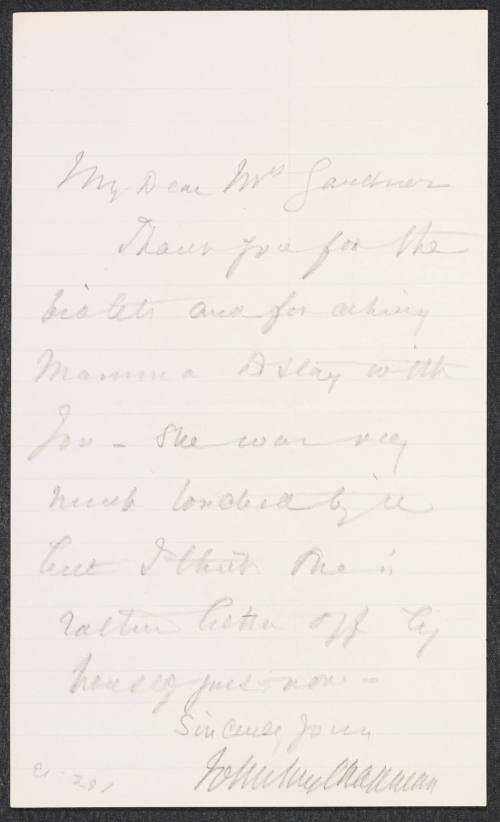 My Dear Mrs Gardner
Thank you for the
violets and for asking
Mamma to stay with
you - She was very
much touched by it
but I think she is
rather better off by
herself just now -
Sincerely yours
John Jay Chapman